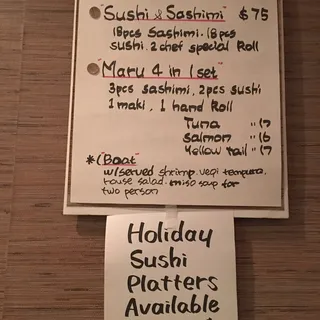 "Sushi & Sashimi" $75
18pcs Sashimi. 18pcs
sushi. 2 chef special Roll
"Maru 4 in 1 set"
3pcs sashimi, 2pcs sushi
1 maki, 1 hand Roll
Tuna "17
Salmon "16
Yellow tail "17
*(Boat"
w/served shrimp. vegi tempura.
house salad. miso soup for
two person
Holiday
Sushi
Platters
Available